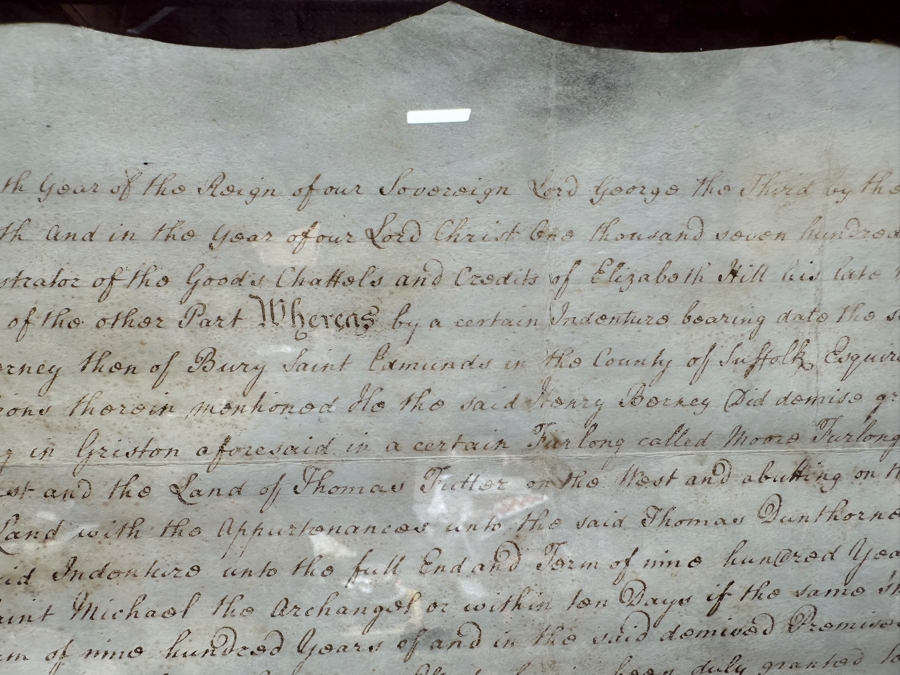 th Year of the Reign of our Sovereign Lord George the Third by the
th and in the Year of our Lord Christ One thousand seven hundred
strator of the Goods Chattels and Credits of Elizabeth Hill his late
of the other Part Whereas by a certain Indenture bearing date the
erney then of Bury Saint Edmunds in the County of Suffolk Esquire
ions therein mentioned He the said Henry Berney Did demise gr
g in Griston aforesaid in a certain Furlong called Moore Furlong
st and the Land of Thomas Tutter on the West and abutting on
Land with the Appurtenances unto the said Thomas Dunthorne
id Indenture unto the full End and Term of nine hundred Yea
aint Michael the Archangel or within ten Days if the same
rm of nine hundred Years of and in the said demised Premises
been duly granted